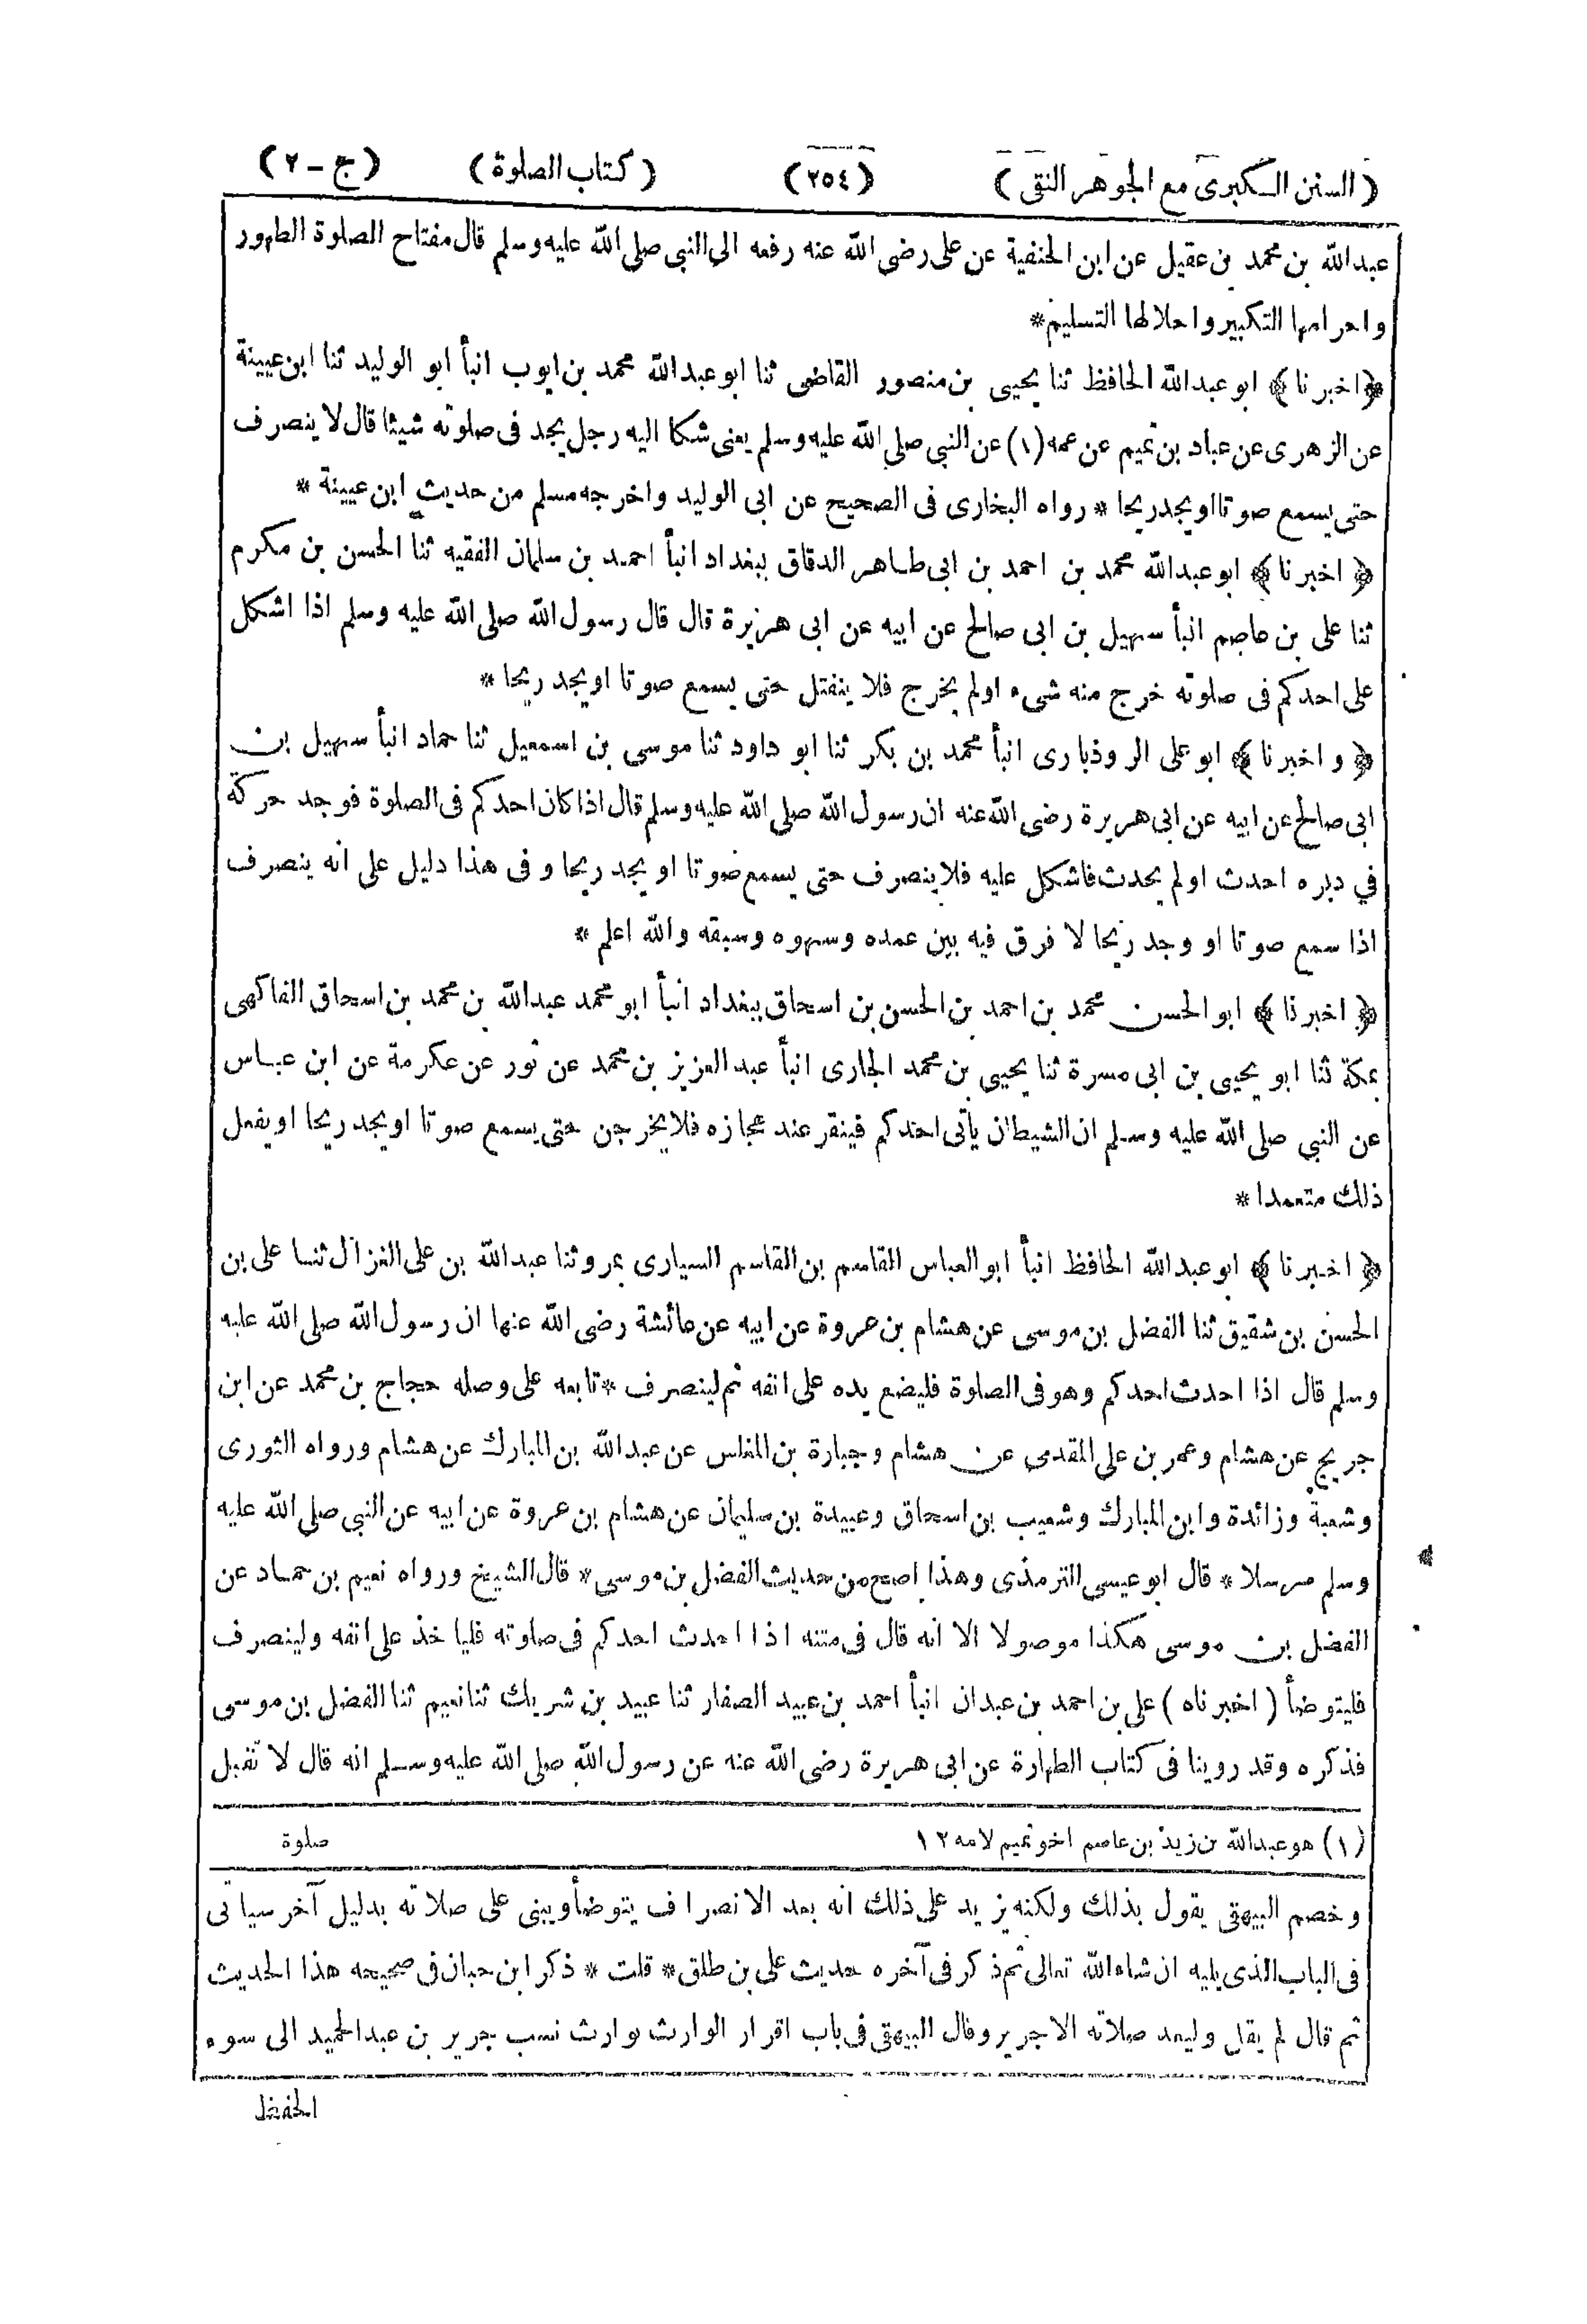 (السنن الكبرى مع الجوهر النقى) (٢٥٤) (كتاب الصلوة) (ج - ٢)
عبدالله بن محمد بن عقيل عن ابن الحنفية عن على رضى الله عنه رفعه الى النبى صلى الله عليه وسلم قال مفتاح الصلوة الطهور
واحرامها التكبير واحلالها التسليم *
﴿اخبرنا﴾ ابوعبدالله الحافظ ثنا يحيى بن منصور القاضى ثنا ابوعبدالله محمد بن ايوب انبأ ابو الوليد ثنا ابن عيينة
عن الزهرى عن عباد بن تميم عن عمه (١) عن النبى صلى الله عليه وسلم يعنى شكا اليه رجل يجد فى صلوته شيئا قال لا ينصرف
حتى يسمع صوتا او يجد ريحا * رواه البخارى فى الصحيح عن ابى الوليد واخرجه مسلم من حديث ابن عيينة *
﴿اخبرنا﴾ ابوعبدالله محمد بن احمد بن ابى طاهر الدقاق ببغداد انبأ احمد بن سلمان الفقيه ثنا الحسن بن مكرم
ثنا على بن عاصم انبأ سهيل بن ابى صالح عن ابيه عن ابى هريرة قال قال رسول الله صلى الله عليه وسلم اذا اشكل
على احدكم فى صلوته خرج منه شىء اولم يخرج فلا ينفتل حتى يسمع صوتا او يجد ريحا *
﴿واخبرنا﴾ ابوعلى الروذبارى انبأ محمد بن بكر ثنا ابو داود ثنا موسى بن اسمعيل ثنا حماد انبأ سهيل بن
ابى صالح عن ابيه عن ابى هريرة رضى الله عنه ان رسول الله صلى الله عليه وسلم قال اذا كان احدكم فى الصلوة فوجد حركة
في دبره احدث اولم يحدث فاشكل عليه فلا ينصرف حتى يسمع صوتا او يجد ريحا وفى هذا دليل على انه ينصرف
اذا سمع صوتا او وجد ريحا لا فرق فيه بين عمده وسهوه وسبقه والله اعلم *
﴿اخبرنا﴾ ابوالحسن محمد بن احمد بن الحسن بن اسحاق ببغداد انبأ ابو محمد عبدالله بن محمد بن اسحاق الفاكهى
بمكة ثنا ابو يحيى بن ابى مسرة ثنا يحيى بن محمد الجارى انبأ عبد العزيز بن محمد عن ثور عن عكرمة عن ابن عباس
عن النبى صلى الله عليه وسلم ان الشيطان يأتى احدكم فينقر عند عجازه فلا يخرجن حتى يسمع صوتا او يجد ريحا او يفعل
ذلك متعمدا *
﴿اخبرنا﴾ ابوعبدالله الحافظ انبأ ابو العباس القاسم بن القاسم السيارى بمرو ثنا عبدالله بن على الغزال ثنا على بن
الحسن بن شقيق ثنا الفضل بن موسى عن هشام بن عروة عن ابيه عن عائشة رضى الله عنها ان رسول الله صلى الله عليه
وسلم قال اذا احدث احدكم وهو فى الصلوة فليضع يده على انفه ثم لينصرف * تابعه على وصله حجاج بن محمد عن ابن
جريج عن هشام وعمر بن على المقدمى عن هشام وجبارة بن المغلس عن عبدالله بن المبارك عن هشام ورواه الثورى
وشعبة وزائدة وابن المبارك وشعيب بن اسحاق وعبيدة بن سليمان عن هشام بن عروة عن ابيه عن النبى صلى الله عليه
وسلم مرسلا * قال ابوعيسى الترمذى وهذا اصح من حديث الفضل بن موسى * قال الشيخ ورواه نعيم بن حماد عن
الفضل بن موسى هكذا موصولا الا انه قال فى متنه اذا احدث احدكم فى صلوته فلياخذ على انفه ولينصرف
فليتوضأ (اخبرناه) على بن احمد بن عبدان انبأ احمد بن عبيد الصفار ثنا عبيد بن شريك ثنا نعيم ثنا الفضل بن موسى
فذكره وقد روينا فى كتاب الطهارة عن ابى هريرة رضى الله عنه عن رسول الله صلى الله عليه وسلم انه قال لا تقبل
صلوة
(١) هو عبدالله بن زيد بن عاصم اخو تميم لامه ١٢
وخصم البيهقى يقول بذلك ولكنه يزيد على ذلك انه بعد الانصراف يتوضأ ويبنى على صلاته بدليل آخر سياتى
فى الباب الذى يليه ان شاء الله تعالى ثم ذكر فى آخره حديث على بن طلق * قلت * ذكر ابن حبان فى صحيحه هذا الحديث
ثم قال لم يقل وليعد صلاته الا جرير وقال البيهقى فى باب اقرار الوارث بوارث نسب جرير بن عبدالحميد الى سوء
الحفظ